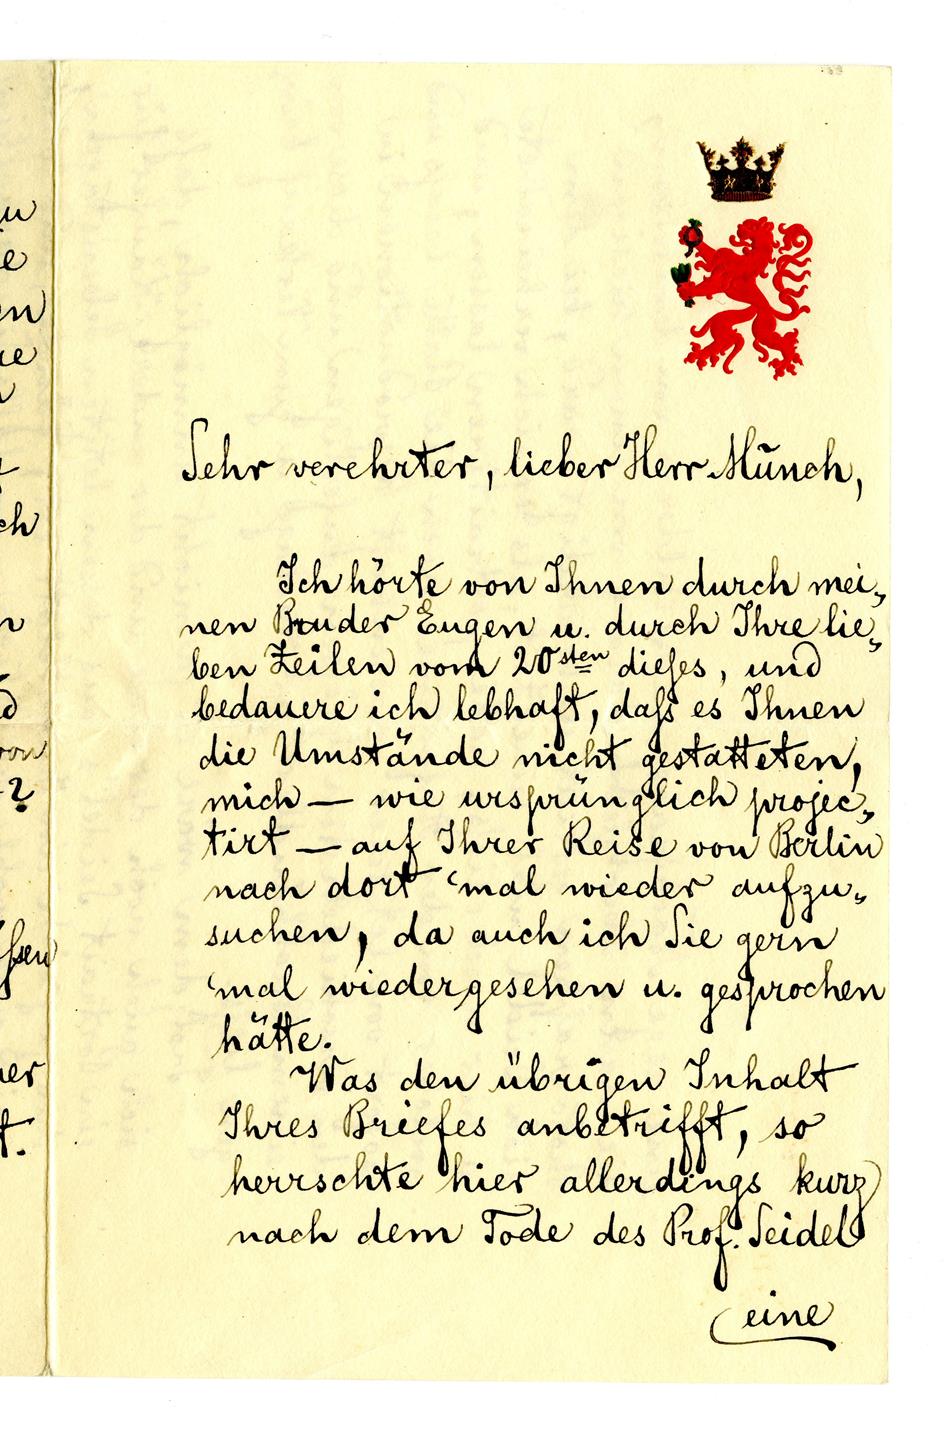 Sehr verehrter, lieber Herr Münch,
Ich hörte von Ihnen durch mei„
nen Bruder Eugen u. durch Ihre lie„
ben Zeilen vom 20sten dieses, und
bedauere ich lebhaft, dass es Ihnen
die Umstände nicht gestatteten,
mich — wie ursprünglich projec„
tirt — auf Ihrer Reise von Berlin
nach dort 'mal wieder aufzu„
suchen, da auch ich Sie gern
'mal wiedergesehen u. gesprochen
hätte.
Was den übrigen Inhalt
Ihres Briefes anbetrifft, so
herrschte hier allerdings kurz
nach dem Tode des Prof. Seidel
eine